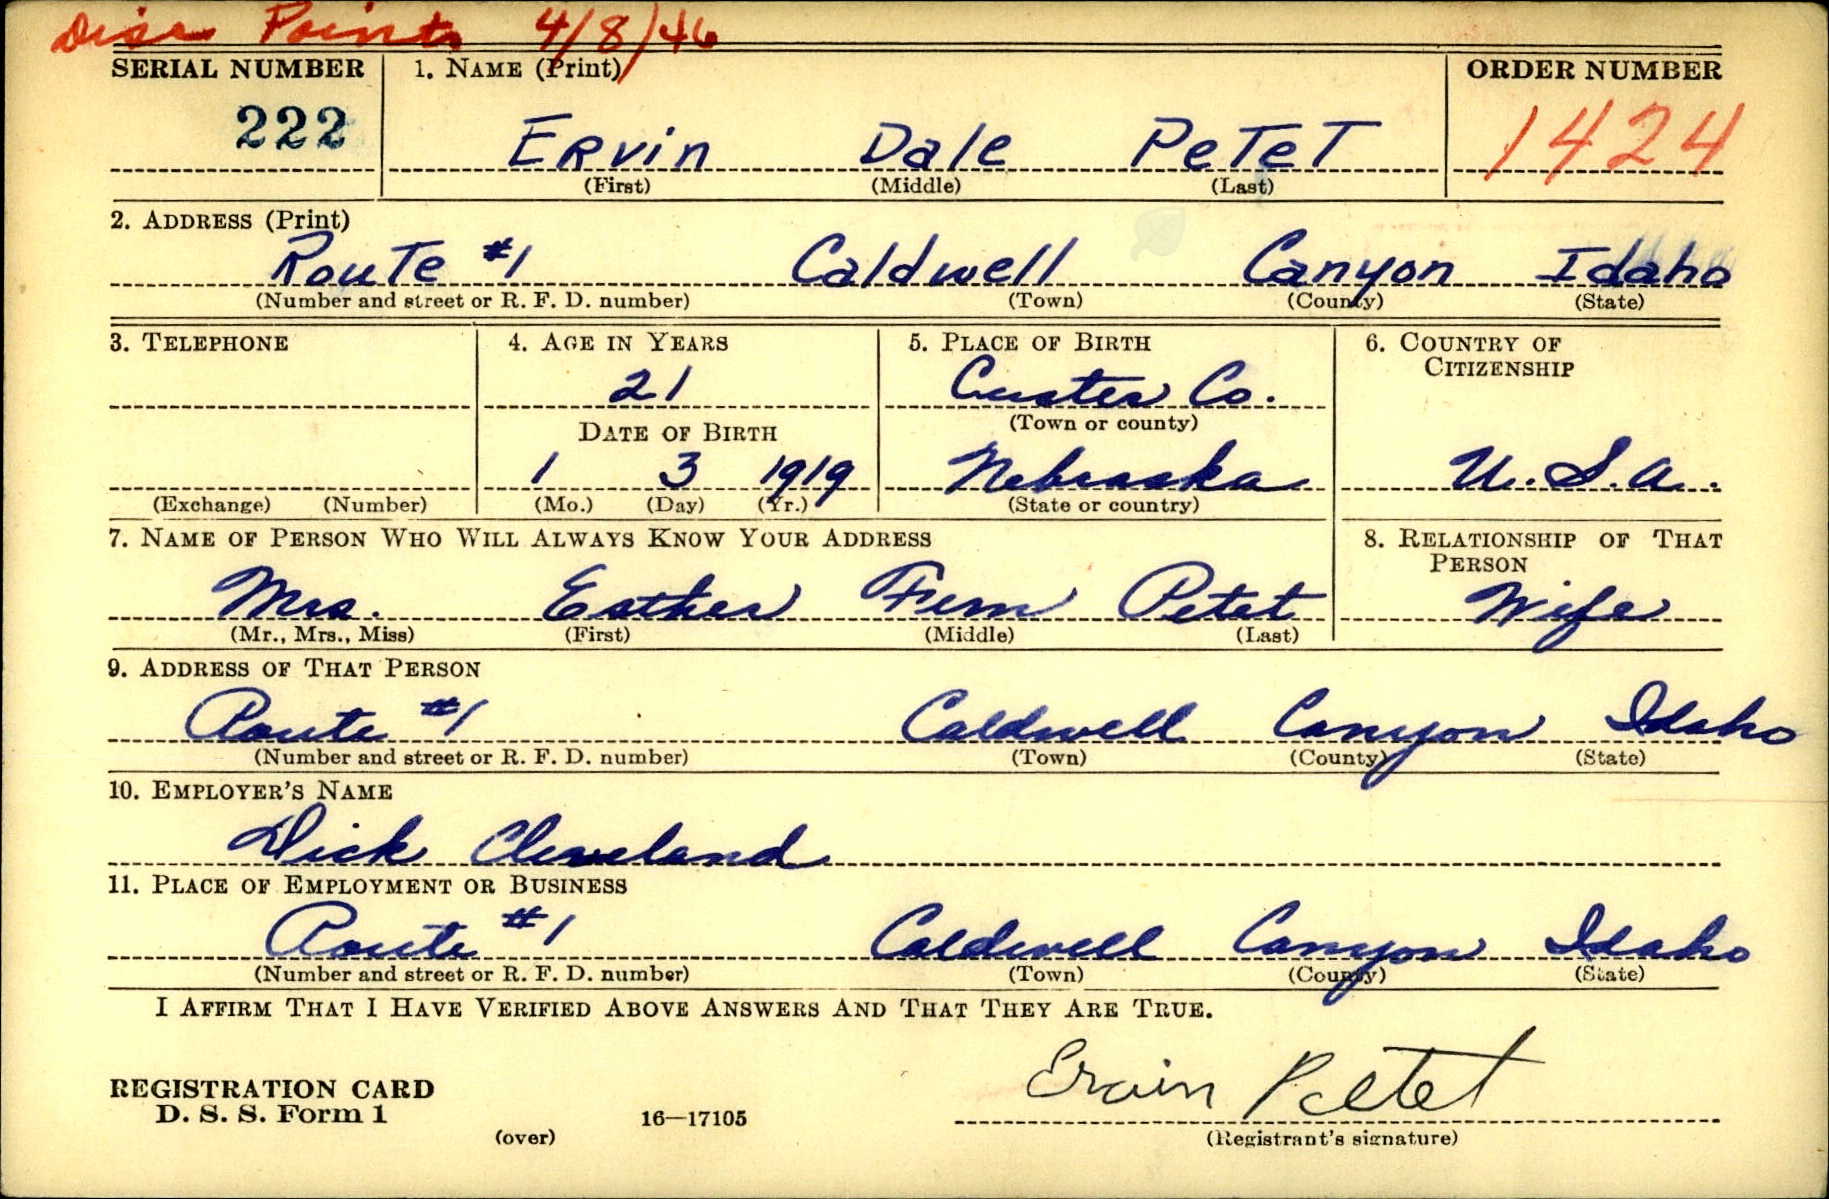 Disc Points 4/8/46
SERIAL NUMBER 1. NAME (Print) ORDER NUMBER
222 ERvin Dale PeTeT 1424
(First) (Middle) (Last)
2. ADDRESS (Print)
RouTe #1 Caldwell Canyon Idaho
(Number and street or R. F. D. number) (Town) (County) (State)
3. TELEPHONE 4. AGE IN YEARS 5. PLACE OF BIRTH 6. COUNTRY OF
CITIZENSHIP
21 Custer Co.
DATE OF BIRTH (Town or county)
1 3 1919 Nebraska U.S.A.
(Exchange) (Number) (Mo.) (Day) (Yr.) (State or country)
7. NAME OF PERSON WHO WILL ALWAYS KNOW YOUR ADDRESS 8. RELATIONSHIP OF THAT
PERSON
Mrs. Esther Fern Petet Wife
(Mr., Mrs., Miss) (First) (Middle) (Last)
9. ADDRESS OF THAT PERSON
Route #1 Caldwell Canyon Idaho
(Number and street or R. F. D. number) (Town) (County) (State)
10. EMPLOYER'S NAME
Dick Cleveland
11. PLACE OF EMPLOYMENT OR BUSINESS
Route #1 Caldwell Canyon Idaho
(Number and street or R. F. D. number) (Town) (County) (State)
I AFFIRM THAT I HAVE VERIFIED ABOVE ANSWERS AND THAT THEY ARE TRUE.
Ervin Petet
REGISTRATION CARD
D. S. S. Form 1 16—17105
(over) (Registrant's signature)